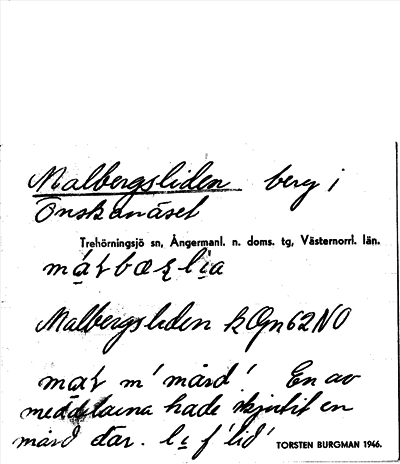 Malbergsliden berg i
Önskanäset
Trehörningsjö sn, Ångermanl. n. doms. tg, Västernorrl. län.
Malbergsliden kOgn62NO
m' mård'. En av
meddelarna hade skjutit en
mård där. f 'lid'
TORSTEN BURGMAN 1946.